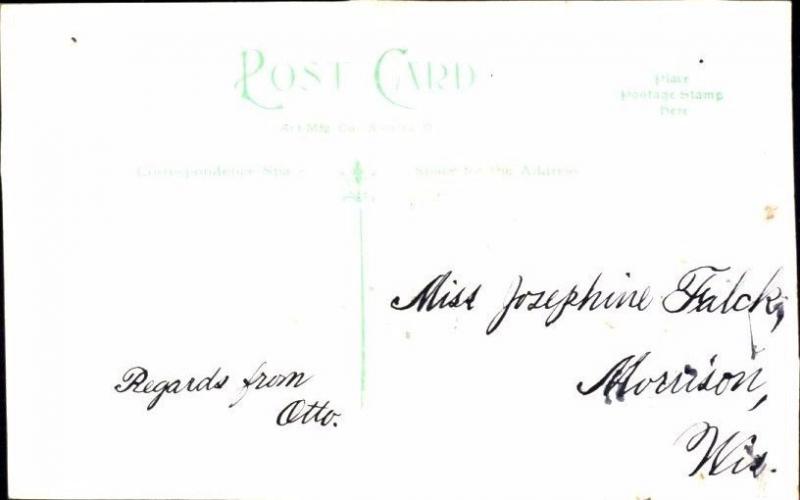 POST CARD
Place
Postage Stamp
Here
Art Mfg. Co.
Correspondence Space
Space for the Address
Miss Josephine Falck,
Morrison,
Wis.
Regards from
Otto.